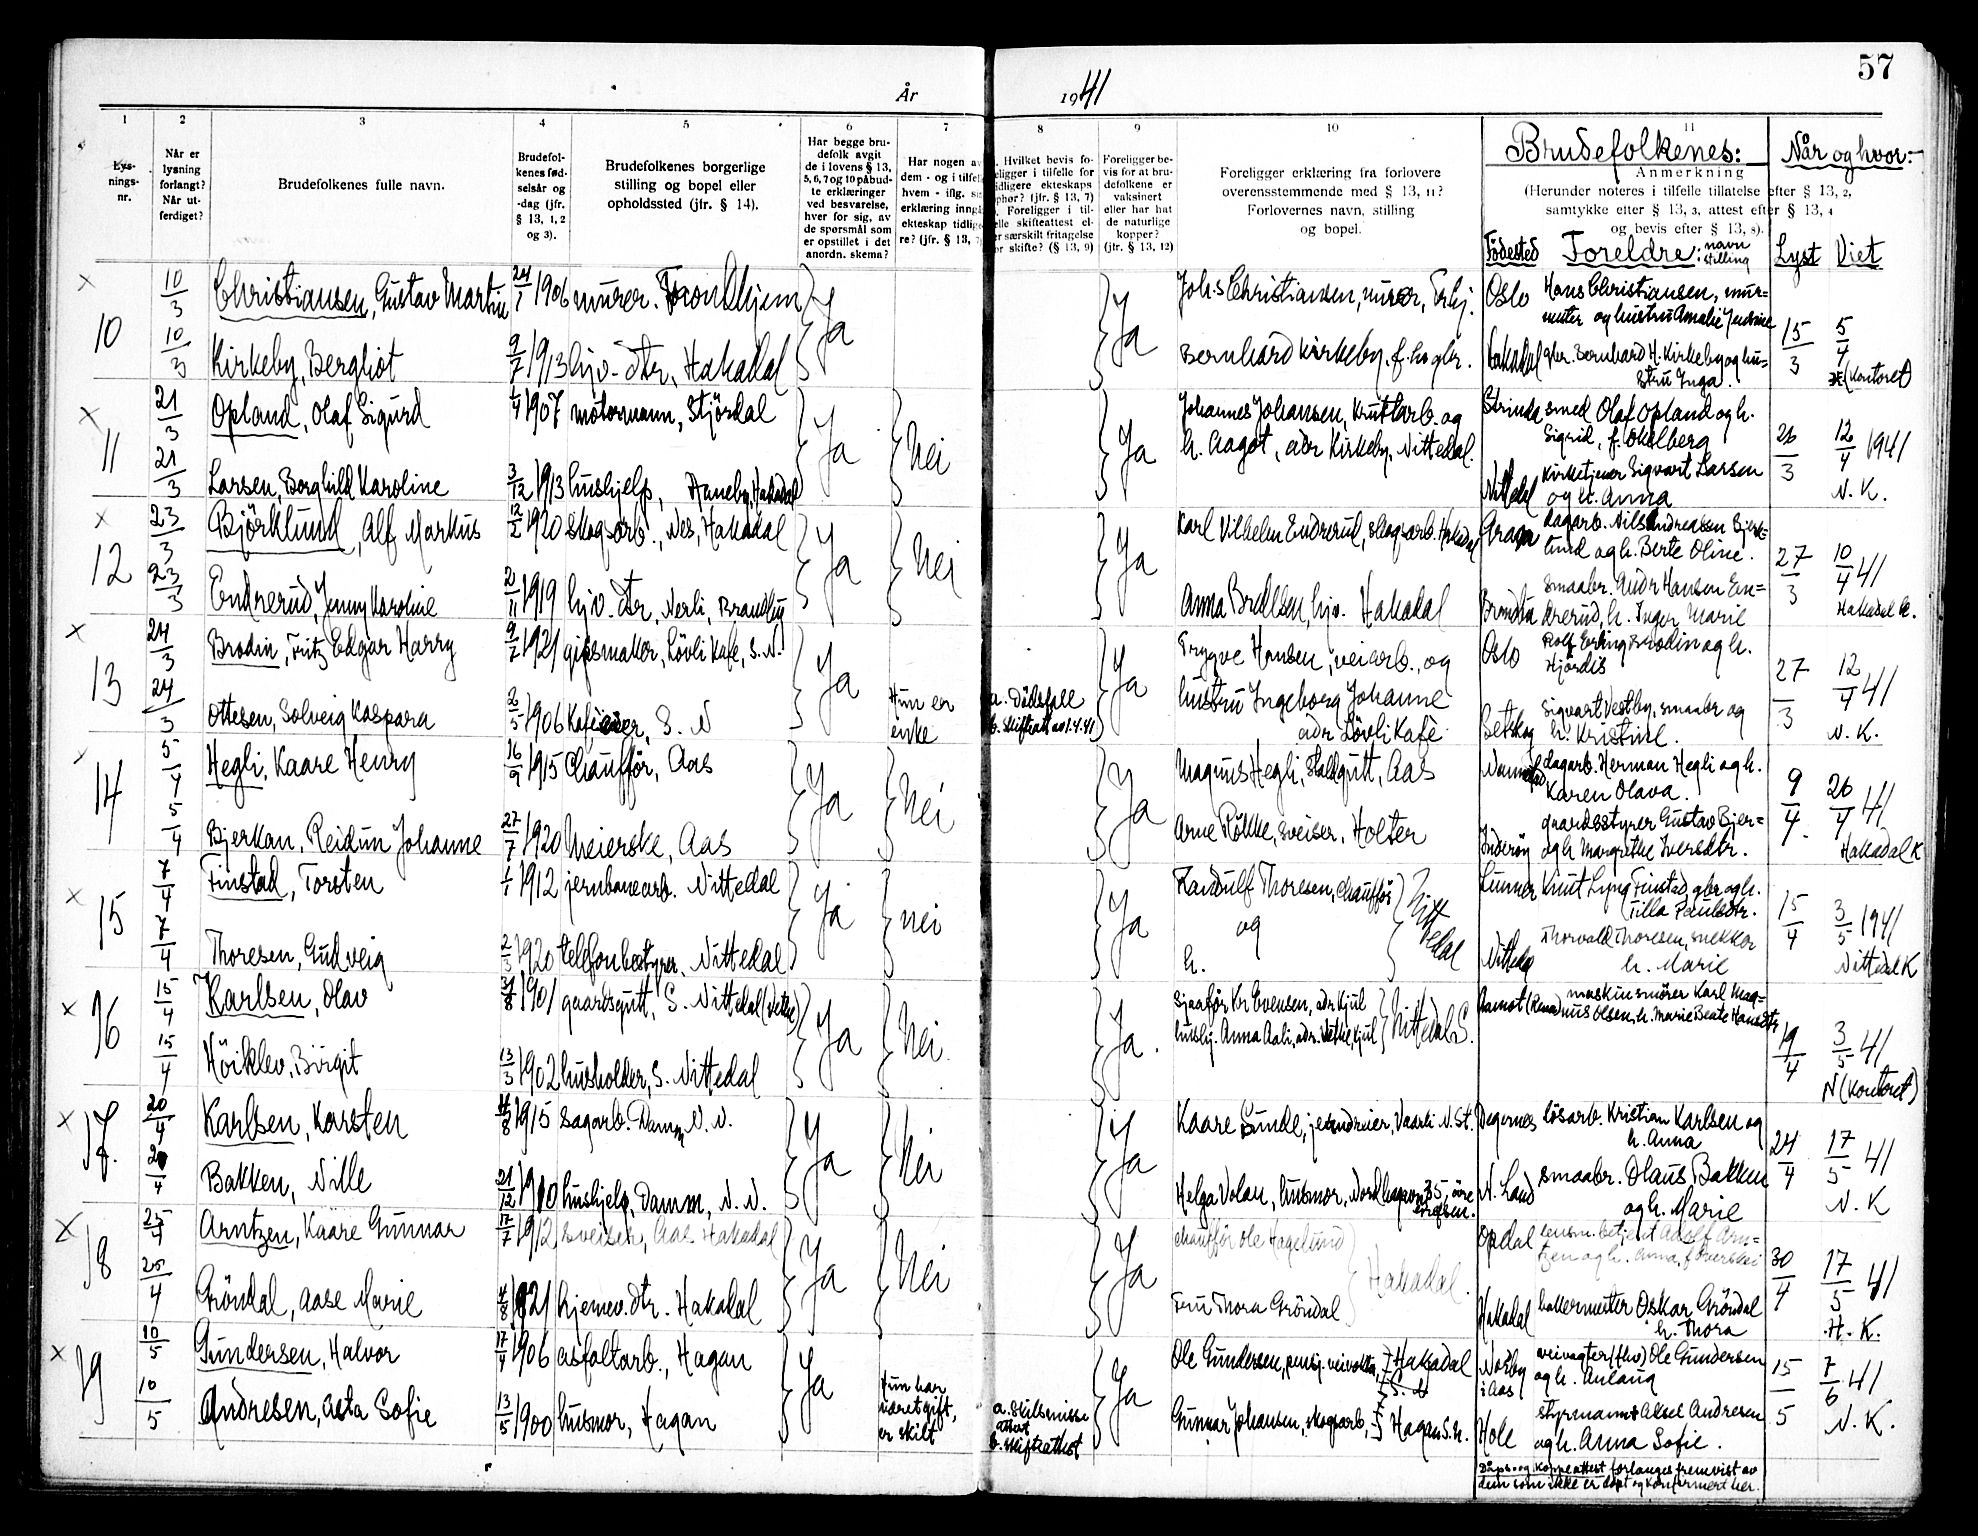 57
År 1941
1 2 3 4 5 6 7 8 9 10 11
Lys-
nings-
nr.
Når er
lysning
forlangt?
Når ut-
ferdiget?
Brudefolkenes fulle navn.
Brudefol-
kenes fød-
selsår og
-dag (jfr.
§ 13, 1, 2
og 3).
Brudefolkenes borgerlige
stilling og bopel eller
opholdssted (jfr. § 14).
Har begge bru-
defolk avgit
de i lovens § 13,
5, 6, 7 og 10 påbud-
te erklæringer
ved besvarelse,
hver for sig, av
de spørsmål som
er opstillet i det
anordn. skema?
Har nogen av
dem - og i tilfelle
hvem - iflg.
erklæring inngå
ekteskap tidlige-
re? (jfr. § 13,
Hvilket bevis fo-
religger i tilfelle for
tidligere ekteskaps
ophør? (jfr. § 13, 7)
Foreligger i til-
felle skifteattest el-
er særskilt fritagelse
or skifte? (§ 13, 9)
Foreligger be-
vis for at bru-
defolkene er
vaksinert
eller har hat
de naturlige
kopper?
(jfr. § 13, 12)
Foreligger erklæring fra forlovere
overensstemmende med § 13, 11?
Forlovernes navn, stilling
og bopel.
Brudefolkenes: Når og hvor:-
Anmerkning
(Herunder noteres i tilfelle tillatelse efter § 13, 2,
samtykke etter § 13, 3, attest efter § 13, 4
og bevis efter § 13, 8).
Fødested Foreldre: navn stilling Lyst Viet
× 10 10/3 Christiansen, Gustav Martin 24/1 1906 murer. Trondhjem Ja Ja Johs Christiansen, murer, Oslo Hans Christiansen, mur-
mester og hustru Amalie 15/3 5/4
10/3 Kirkeby, Bergliot 9/7 1913 hjv-dtr, Hakadal Bernhard Kirkeby, f. hv gbr. Hakadal gbr. Bernhard H. Kirkeby og hu-
stru Inga. (Kontoret
× 11 21/3 Opland, Olaf Sigurd 1/4 1907 motormann, Stjördal Ja Nei Ja Johannes Johansen, Kruttarb. og Strinda smed Olaf Opland og h.
h. Aagot, adr Kirkeby, Nittedal. Sigrid, f. 26/3 12/4 1941
21/3 Larsen, Borghild Karoline 3/12 1913 hushjelp, Haneby, Hakadal Nittedal Kirketjener Sigvart Larsen
og h. Anna N. K.
× 12 23/3 Björklund, Alf Markus 12/2 1920 skogsarb., Nes, Hakadal Ja Nei Ja Karl Vilhelm Endrerud, skogsarb. Hakadal Gran dagarb. Nils Andreasen Bjørk-
lund og h. Berte Oline. 27/3 10/4 41
23/3 Endrerud, Jenny Karoline 2/11 1919 hjv. dtr, Nerli, Brandbu Anna hjv. Hakadal Brandbu smaabr. Andr Hansen En-
drerud, h. Inger Marie Hakadal K.
× 13 24/3 Brodin, Fritz Edgar Harry 9/7 1921 gipsmaker, Lövli Kafe, S. N. Ja Ja Trygve Hansen, veiarb., og Oslo Rolf Erling Brodin og h.
Hjördis 27/3 12/4 41
24/3 Ottesen, Solveig Kaspara 2/5 1906 Kafeeier, S. N Hun er
enke a. Dödsfall
b. Skifteatt. av 1.4.41 hustru Ingeborg Johanne
adr Lövli Kafè Setskog Sigvart Vestby, smaabr og
h. Kristine. N. K.
14 5/4 Hegli, Kaare Henry 16/9 1915 Chaufför, Aas Ja Nei Ja Magnus Hegli, Stallgutt, Aas dagarb. Herman Hegli og h.
Karen Olava. 9/4 26/4 41
5/4 Bjerkan, Reidun Johanne 27/7 1920 Meierske, Aas Arne Rökke, sveiser, Holter Inderöy gaardsstyrer Gustav Bjer-
og h Margrethe Iversdtr. Hakadal K
× 15 7/4 Finstad, Torsten 1/1 1912 jernbanearb. Nittedal Ja nei Ja Randulf Thoresen, chaufför Nittedal Lunner Knut Lyng Finstad, gbr og h.
og Tilla Paulsdtr. 15/4 3/5 1941
7/4 Thoresen, Gudveig 2/3 1920 telefonbestyrer, Nittedal h. Nittedal Thorvald Thoresen, snekker
h. Marie Nittedal K
× 16 15/4 Karlsen, Olav 31/8 1901 gaardsgutt, S. Nittedal Ja Nei. Ja. Sjaaför Kr Evensen, adr Kjul Nittedal S. Aamot (Rena) maskinsmörer Karl Mag-
nus Olsen, h. Marie Beate Hansdtr 19/4 3/5 41
15/4 Höiklev, Birgit 13/3 1902 husholder, S. Nittedal hushj. Anna Aali, adr. Kjul N (Kontoret)
× 17. 20/4 Karlsen, Karsten 1915 sagarb. Damm N. N. Ja Nei Ja Kaare Sunde, Vaarli N. St. Degernes lösarb. Kristian Karlsen og
h. Anna 24/4 17/5 41
Bakken, Nille 21/12 1910 hushjelp, Damm, N. N. Helga Volan, husmor, N. Land smaabr. Olaus Bakken
og h. Marie N. K
× 18 25/4 Arntzen, Kaare Gunnar 17/7 1912 sveiser, Aas Hakadal Ja Nei Ja chaufför Ole Hagelund Hakadal. Opdal lensm. betjent Adolf Arn-
tzen og h. Anna, 30/4 17/5 41
25/4 Gröndal, Aase Marie 4/8 1921 hjemev. dtr. Hakadal Fru Thora Gröndal Hakadal bakermester Oskar Gröndal
h. Thora H. K.
× 19 10/5 Gundersen, Halvor 17/4 1906 asfaltarb., Hagan Ja Ja Ole Gundersen, pensj. veivokter, Hakadal Nordby
i Aas veivagter (fhv) Ole Gundersen
og h. Anlaug 15/5 7/6 41
10/5 Andresen, Asta Sofie 13/5 1900 husmor, Hagan Hun har
været gift,
er skilt a. Skilsmisse
attest
b. skifteattest Gunnar Johansen, skogsarb, Hagan S. N. Hole styrmann Aksel Andresen
og h. Anna Sofie. N. K.
Dåps- og Koppeattest forlanges fremvist av
dem som ikke er döpt og konfirmert her.